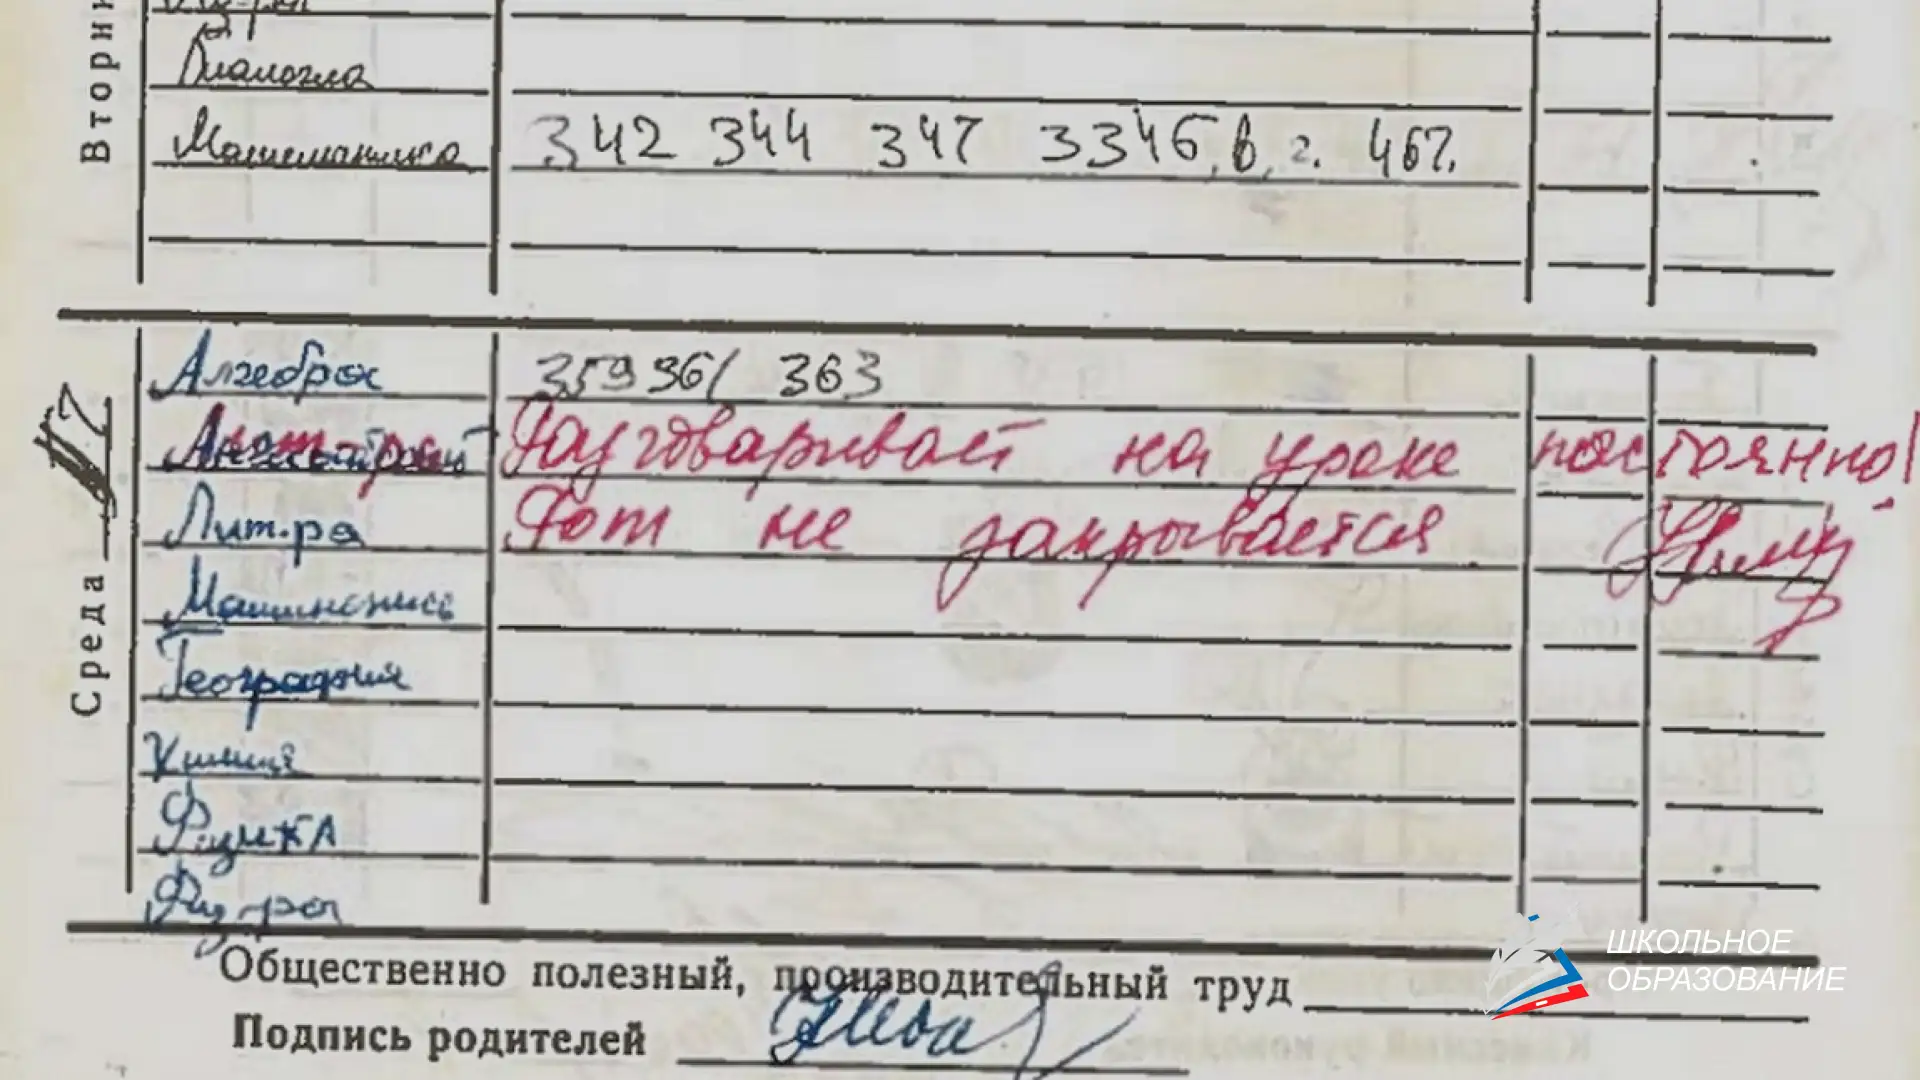 Вторни
Биология
Математика 342 344 347 3346, в, г. 467.
Среда 17
Алгебра 359 361 363
Разговаривает на уроке постоянно!
Лит-ра Рот не закрывается
Машинопись
География
Химия
Физика
Физ-ра
Общественно полезный, производительный труд
Подпись родителей
ШКОЛЬНОЕ
ОБРАЗОВАНИЕ